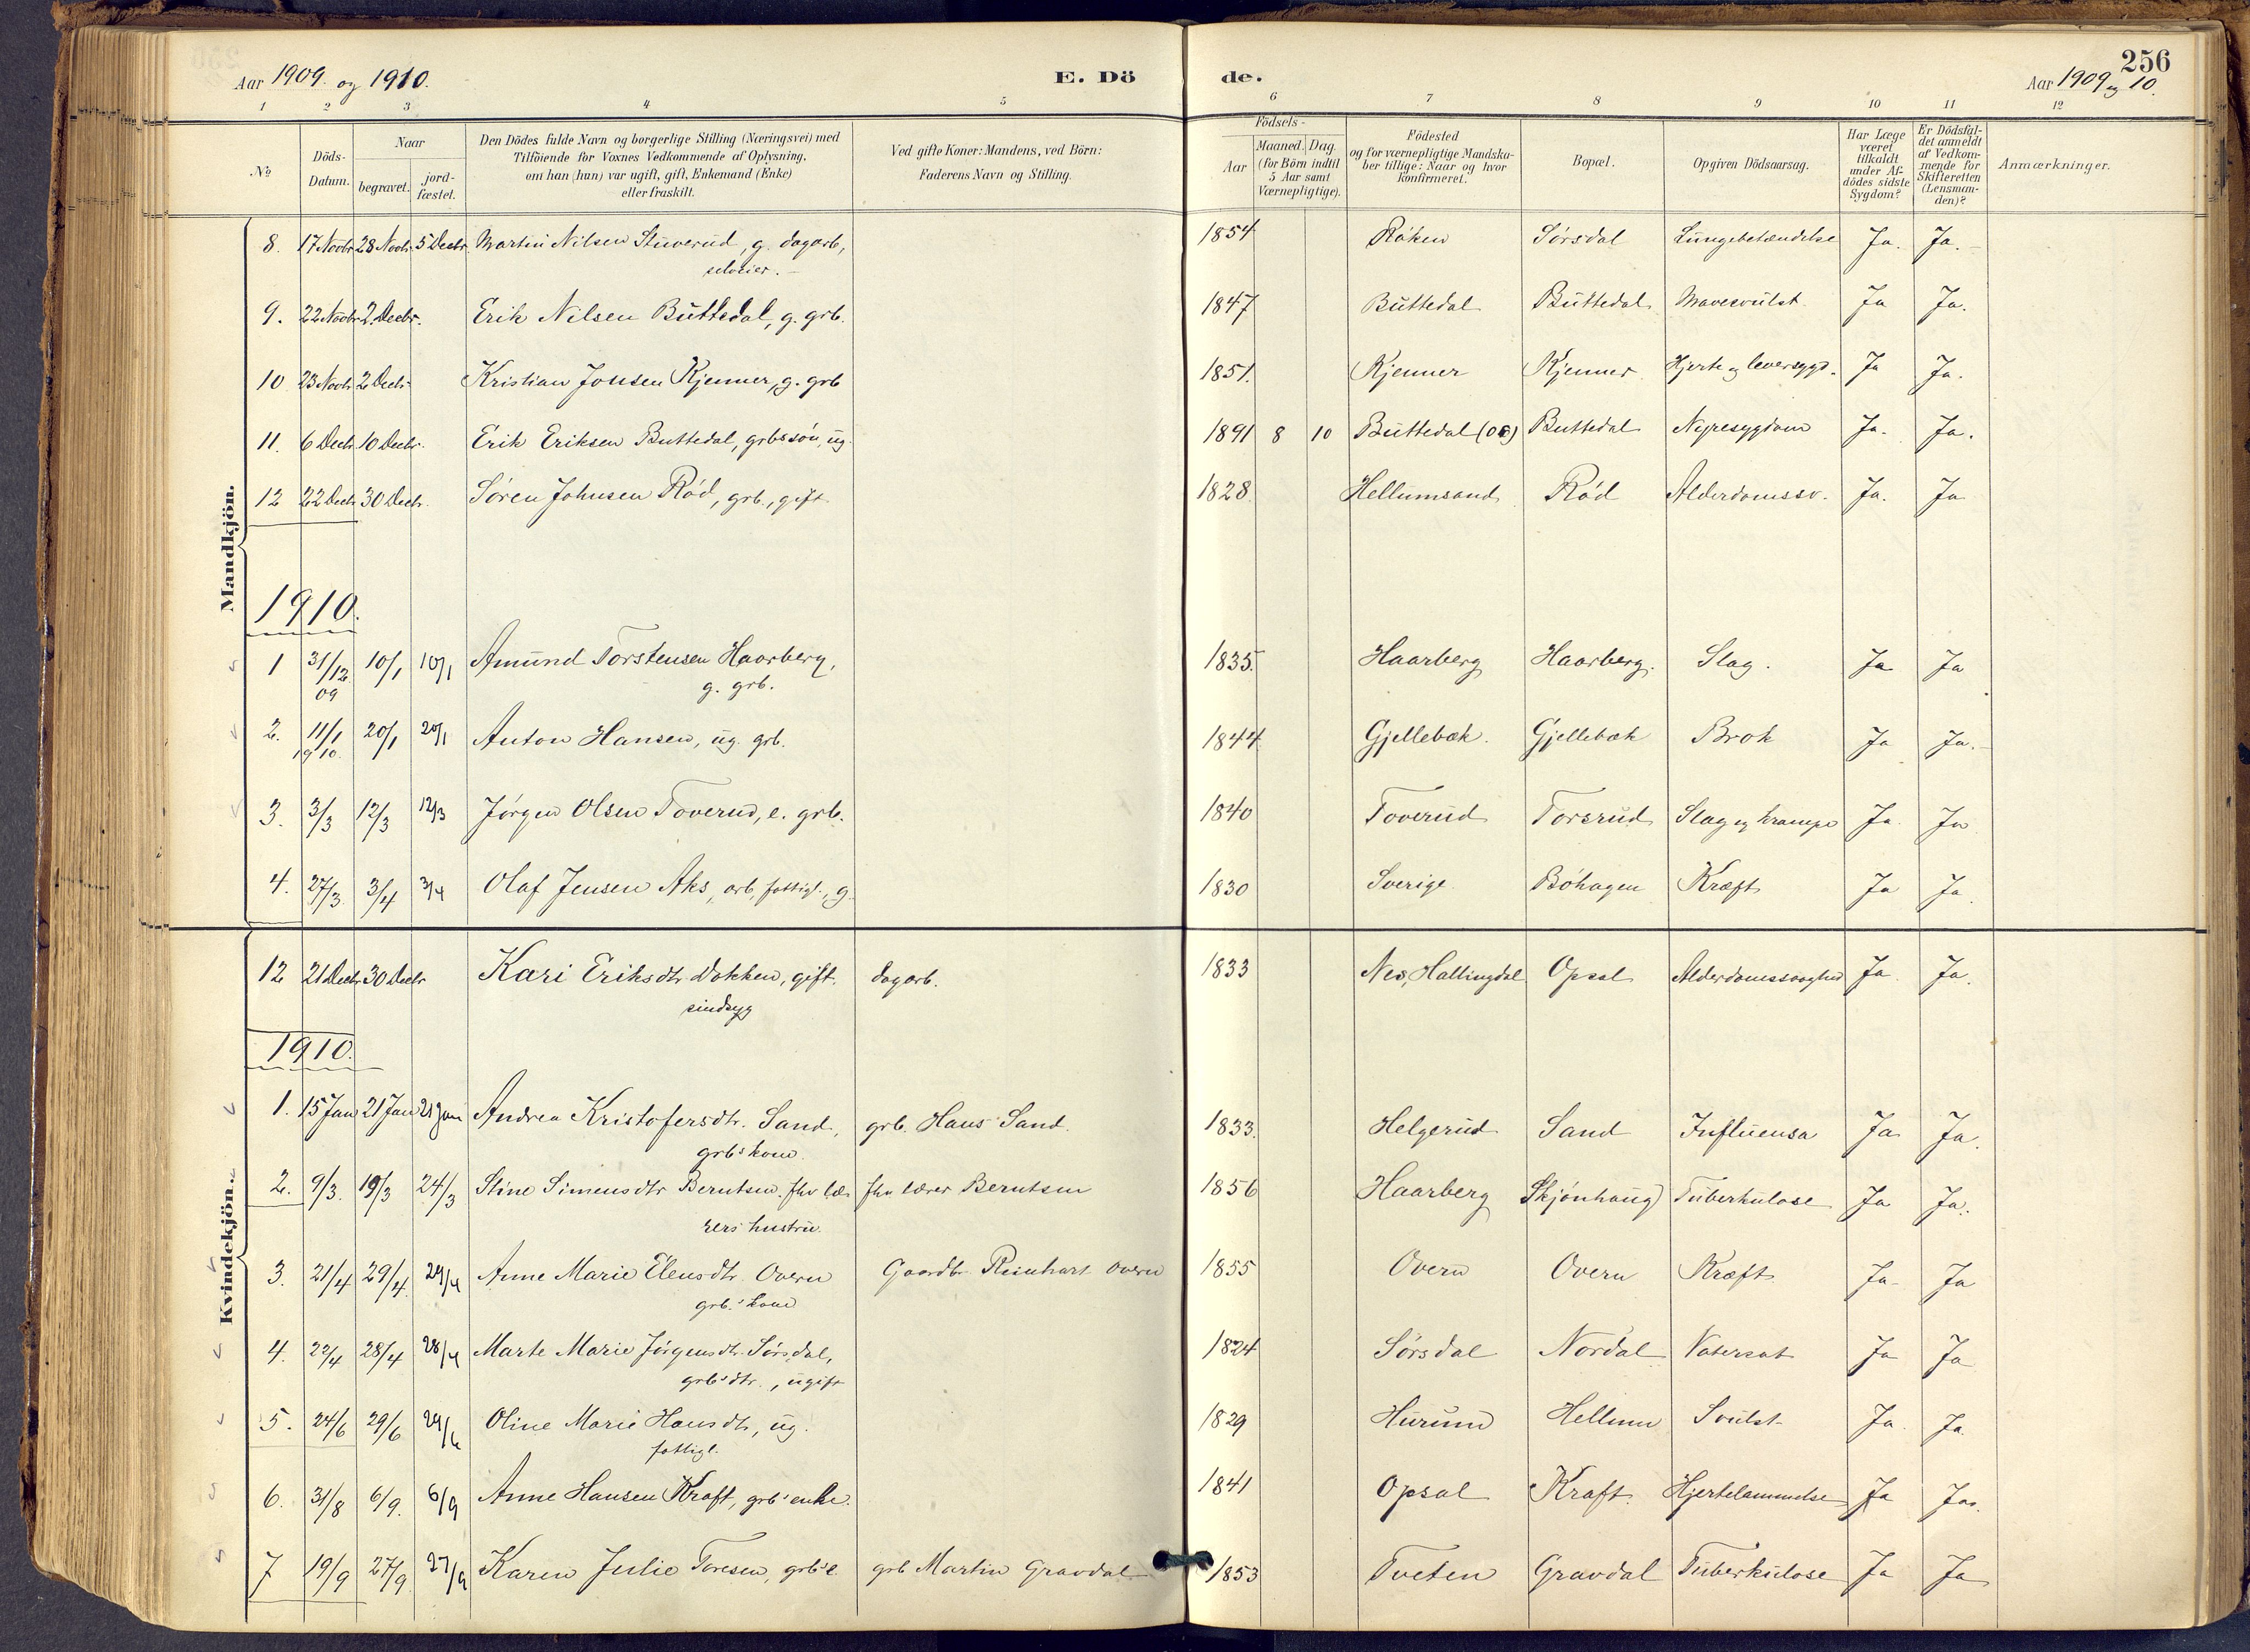 256
Aar 1909. og 1910.
E. Döde.
Aar 1909 og 10.
1 2 3 4 5 6 7 8 9 10 11 12
№
Döds-Datum.
Naar
begravet.
jordfæstet.
Den Dödes fulde Navn og borgerlige Stilling (Næringsvei) med
Tilföiende for Voxnes Vedkommende af Oplysning,
om han (hun) var ugift, gift, Enkemand (Enke)
eller fraskilt.
Ved gifte Koner: Mandens, ved Börn:
Faderens Navn og Stilling.
Födsels-
Aar
Maaned. Dag.
(for Börn indtil
5 Aar samt
Værnepligtige).
Födested
og for værnepligtige Mandska-
ber tillige: Naar og hvor
konfirmeret.
Bopæl.
Opgiven Dödsaarsag.
Har Læge
været
tilkaldt
under Af-
dödes sidste
Sygdom?
Er Dödsfal-
det anmeldt
af Vedkom-
mende for
Skifteretten
(Lensman-
den)?
Anmærkninger.
Mandkjön.
8. 17 Novbr 28 Novbr 5 Decbr. Martin Nilsen Stuverud, g. dagarb, 1854 Røken Sørsdal Lungebetændelse Ja. Ja.
selveier.
9. 22 Novbr 2. Decbr. Erik Nilsen Buttedal, g. grb. 1847 Buttedal Buttedal Mavesvulst Ja Ja.
10 23 Novbr. 2 Decbr. Kristian Jonsen Kjenner, g. grb 1851. Kjenner Kjenner Hjerte og leversygd. Ja Ja.
11. 6 Decbr. 10 Decbr. Erik Eriksen Buttedal, grbs søn, ug 1891 8 10 Buttedal Buttedal Nyresygdom Ja. Ja.
12 22 Decbr 30 Decbr. Søren Johnsen Rød, grb., gift 1828. Hellumsand Rød Alderdomssv. Ja. Ja
1910.
1 31/12 09 10/1 10/1 Amund Torstensen Haarberg, 1835. Haarberg Haarberg. Slag. Ja Ja
g. grb.
2. 11/1 1910. 20/1 20/1 Anton Hansen, ug. grb. 1844 Gjellebæk. Gjellebæk Brok Ja Ja.
3. 3/3 12/3 12/3 Jørgen Olsen Toverud, e. grb. 1840 Toverud Torsrud Slag og krampe Ja Ja
4. 27/3 3/4 3/4 Olaf Jensen Aks, arb, fattigl., g. 1830 Sverige Bøhagen Kræft Ja Ja.
Kvindekjön.
12 21 Decbr 30 Decbr Kari Eriksdtr. Dokken, gift. dagarb. 1833 Nes, Hallingdal Opsal Alderdomssvaghed Ja Ja.
sindsyg
1910.
1. 15 Jan 21 Jan 21 Jan Andrea Kristofersdtr. Sand, grb. Hans Sand. 1833. Helgerud Sand Influensa Ja Ja.
grb's kone.
2. 9/3. 19/3 24/3 Stine Simensdtr Berntsen. fhv læ- fhv lærer Berntsen 1856 Haarberg Skjønhaug Tuberkulose Ja Ja.
rers hustru.
3. 21/4 29/4. 29/4 Anne Marie Elensdtr. Overn Gaardbr. Reinhart Overn 1855 Overn Overn Kræft Ja Ja
grb.'s kone
4. 22/4 28/4 28/4 Marte Marie Jørgensdtr. Sørsdal, 1824 Sørsdal Nordal Vatersot Ja Ja
grb's dtr., ugift
5. 24/6 29/6 29/6 Oline Marie Hansdtr, ug. 1829 Hurum Hellum Svulst Ja. Ja
fattigl.
6. 31/8 6/9. 6/9 Anne Hansen Kraft, grb's enke. 1841 Opsal Kraft. Hjertelammelse Ja Ja.
7 19/9 27/9 27/9 Karen Julie Toresen, grb's e grb Martin Gravdal 1853 Tveten Gravdal Tuberkulose Ja Ja